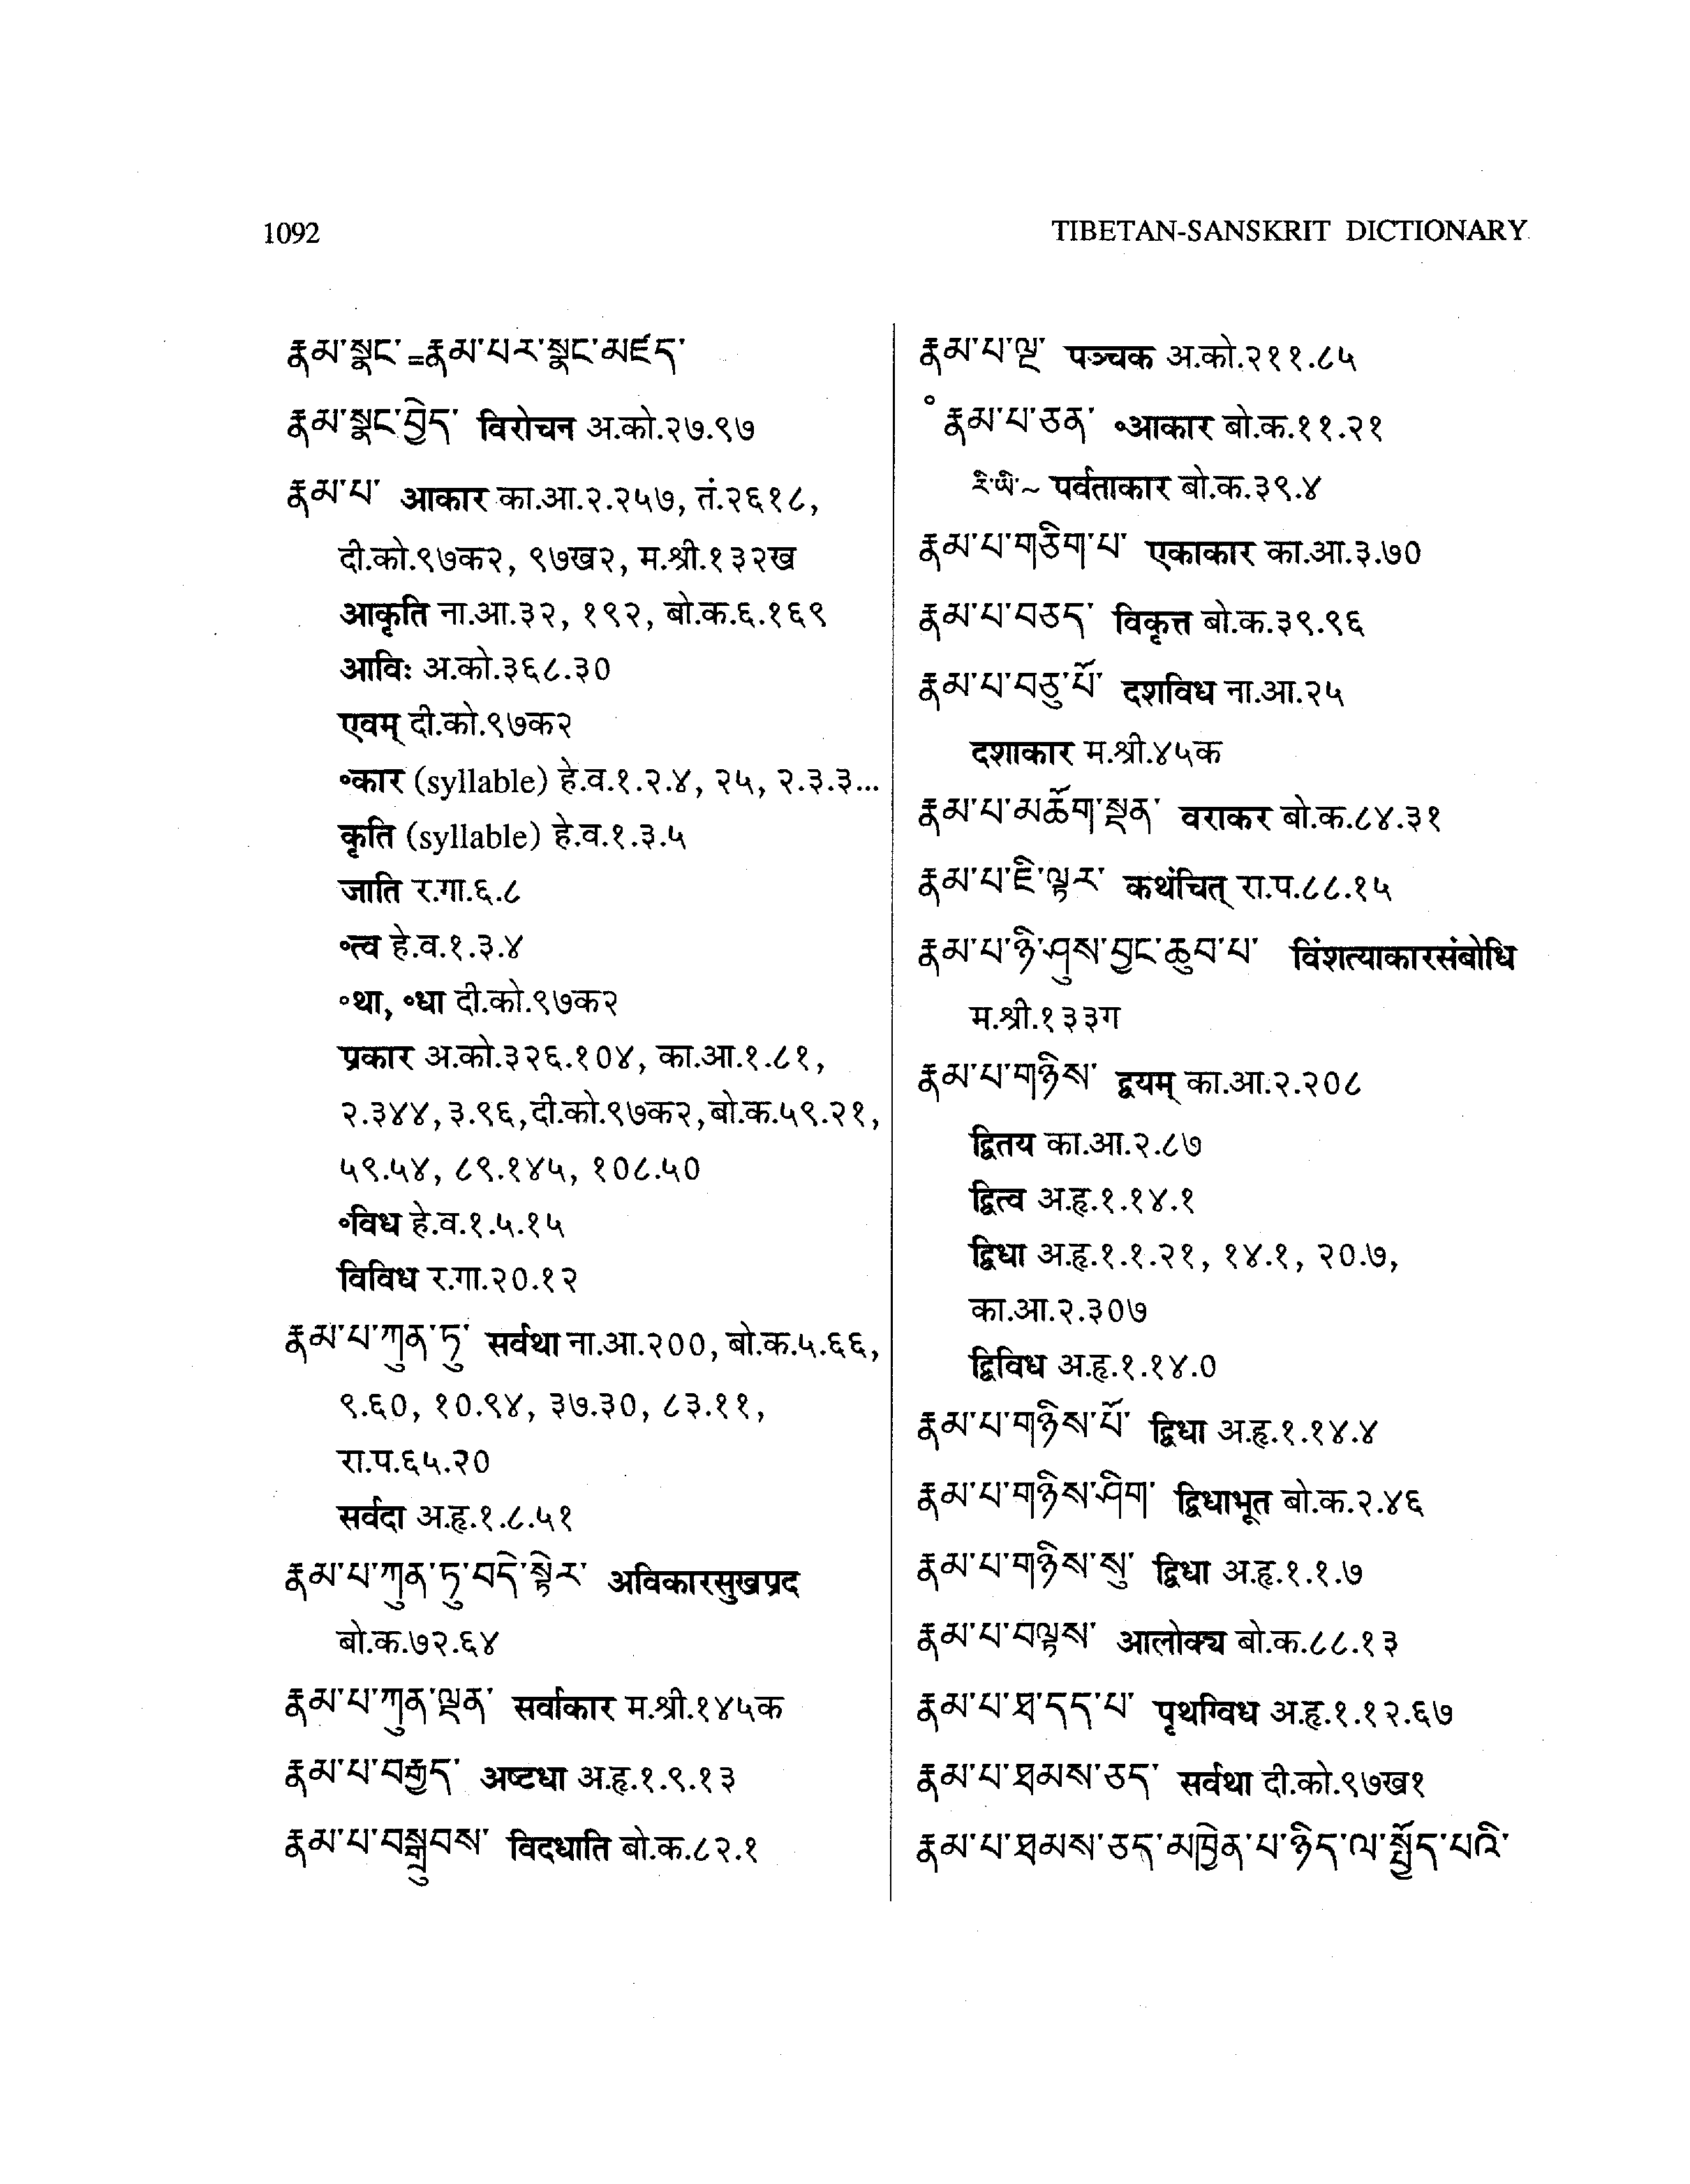 1092
TIBETAN-SANSKRIT DICTIONARY
རྣམ་སྣང་=རྣམ་པར་སྣང་མཛད་
རྣམ་སྣང་བྱེད་ विरोचन अ.को.२७.९७
རྣམ་པ་ आकार का.आ.२.२५७, तं.२६१८,
दी.को.९७क२, ९७ख२, म.श्री.१३२ख
आकृति ना.आ.३२, १९२, बो.क.६.१६९
आविः अ.को.३६८.३०
एवम् दी.को.९७क२
॰कार (syllable) हे.व.१.२.४, २५, २.३.३...
कृति (syllable) हे.व.१.३.५
जाति र.गा.६.८
॰त्व हे.व.१.३.४
॰था, ॰धा दी.को.९७क२
प्रकार अ.को.३२६.१०४, का.आ.१.८१,
२.३४४,३.९६,दी.को.९७क२,बो.क.५९.२१,
५९.५४, ८९.१४५, १०८.५०
॰विध हे.व.१.५.१५
विविध र.गा.२०.१२
རྣམ་པ་ཀུན་ཏུ་ सर्वथा ना.आ.२००, बो.क.५.६६,
९.६०, १०.९४, ३७.३०, ८३.११,
रा.प.६५.२०
सर्वदा अ.हृ.१.८.५१
རྣམ་པ་ཀུན་ཏུ་བདེ་སྟེར་ अविकारसुखप्रद
बो.क.७२.६४
རྣམ་པ་ཀུན་ལྡན་ सर्वाकार म.श्री.१४५क
རྣམ་པ་བརྒྱད་ अष्टधा अ.हृ.१.९.१३
རྣམ་པ་བསྒྲུབས་ विदधाति बो.क.८२.१
རྣམ་པ་ལྔ་ पञ्चक अ.को.२११.८५
॰རྣམ་པ་ཅན་ ॰आकार बो.क.११.२१
རི་ཡི་~ पर्वताकार बो.क.३९.४
རྣམ་པ་གཅིག་པ་ एकाकार का.आ.३.७०
རྣམ་པ་བཅད་ विकृत्त बो.क.३९.९६
རྣམ་པ་བཅུ་པོ་ दशविध ना.आ.२५
दशाकार म.श्री.४५क
རྣམ་པ་མཆོག་ལྡན་ वराकर बो.क.८४.३१
རྣམ་པ་ཇི་ལྟར་ कथंचित् रा.प.८८.१५
རྣམ་པ་ཉི་ཤུས་བྱང་ཆུབ་པ་ विंशत्याकारसंबोधि
म.श्री.१३३ग
རྣམ་པ་གཉིས་ द्वयम् का.आ.२.२०८
द्वितय का.आ.२.८७
द्वित्व अ.हृ.१.१४.१
द्विधा अ.हृ.१.१.२१, १४.१, २०.७,
का.आ.२.३०७
द्विविध अ.हृ.१.१४.०
རྣམ་པ་གཉིས་པོ་ द्विधा अ.हृ.१.१४.४
རྣམ་པ་གཉིས་ཤིག་ द्विधाभूत बो.क.२.४६
རྣམ་པ་གཉིས་སུ་ द्विधा अ.हृ.१.१.७
རྣམ་པ་བལྟས་ आलोक्य बो.क.८८.१३
རྣམ་པ་ཐ་དད་པ་ पृथग्विध अ.हृ.१.१२.६७
རྣམ་པ་ཐམས་ཅད་ सर्वथा दी.को.९७ख१
རྣམ་པ་ཐམས་ཅད་མཁྱེན་པ་ཉིད་ལ་སྤྱོད་པའི་